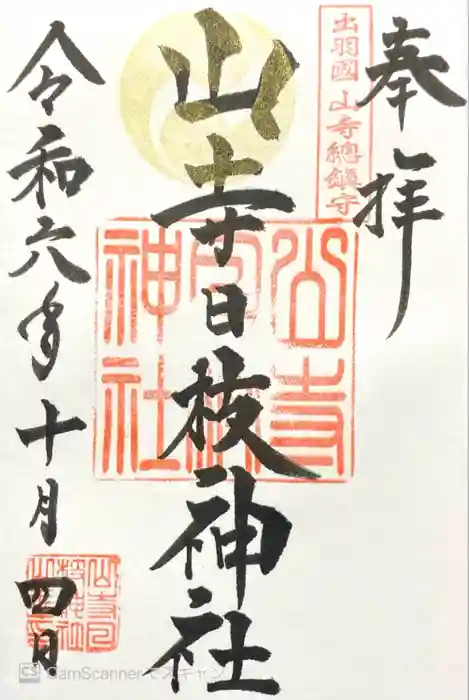 奉拝
出羽國山寺總鎮守
山寺日枝神社
山寺
日枝
神社
令和六年十月四日
CS CamScannerでスキャン